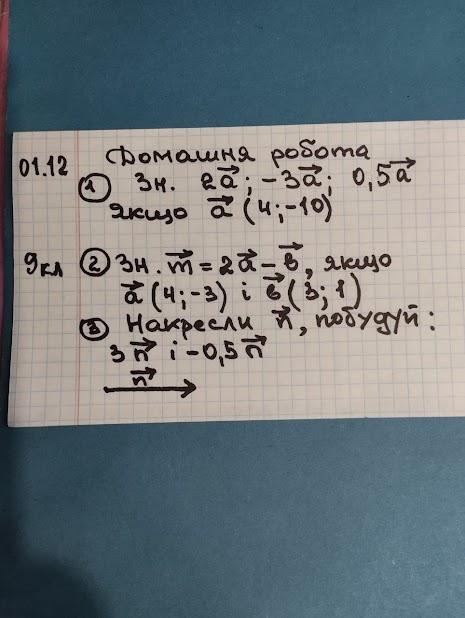 Домашня робота
01.12
① Зн. 2a⃗; -3a⃗; 0,5a⃗
Якщо a⃗ (4;-10)
9кл
② Зн. m⃗ = 2a⃗ - в⃗, якщо
a⃗ (4;-3) і в⃗ (3; 1)
③ Накресли n⃗, побудуй:
3n⃗ і -0,5n⃗
n⃗